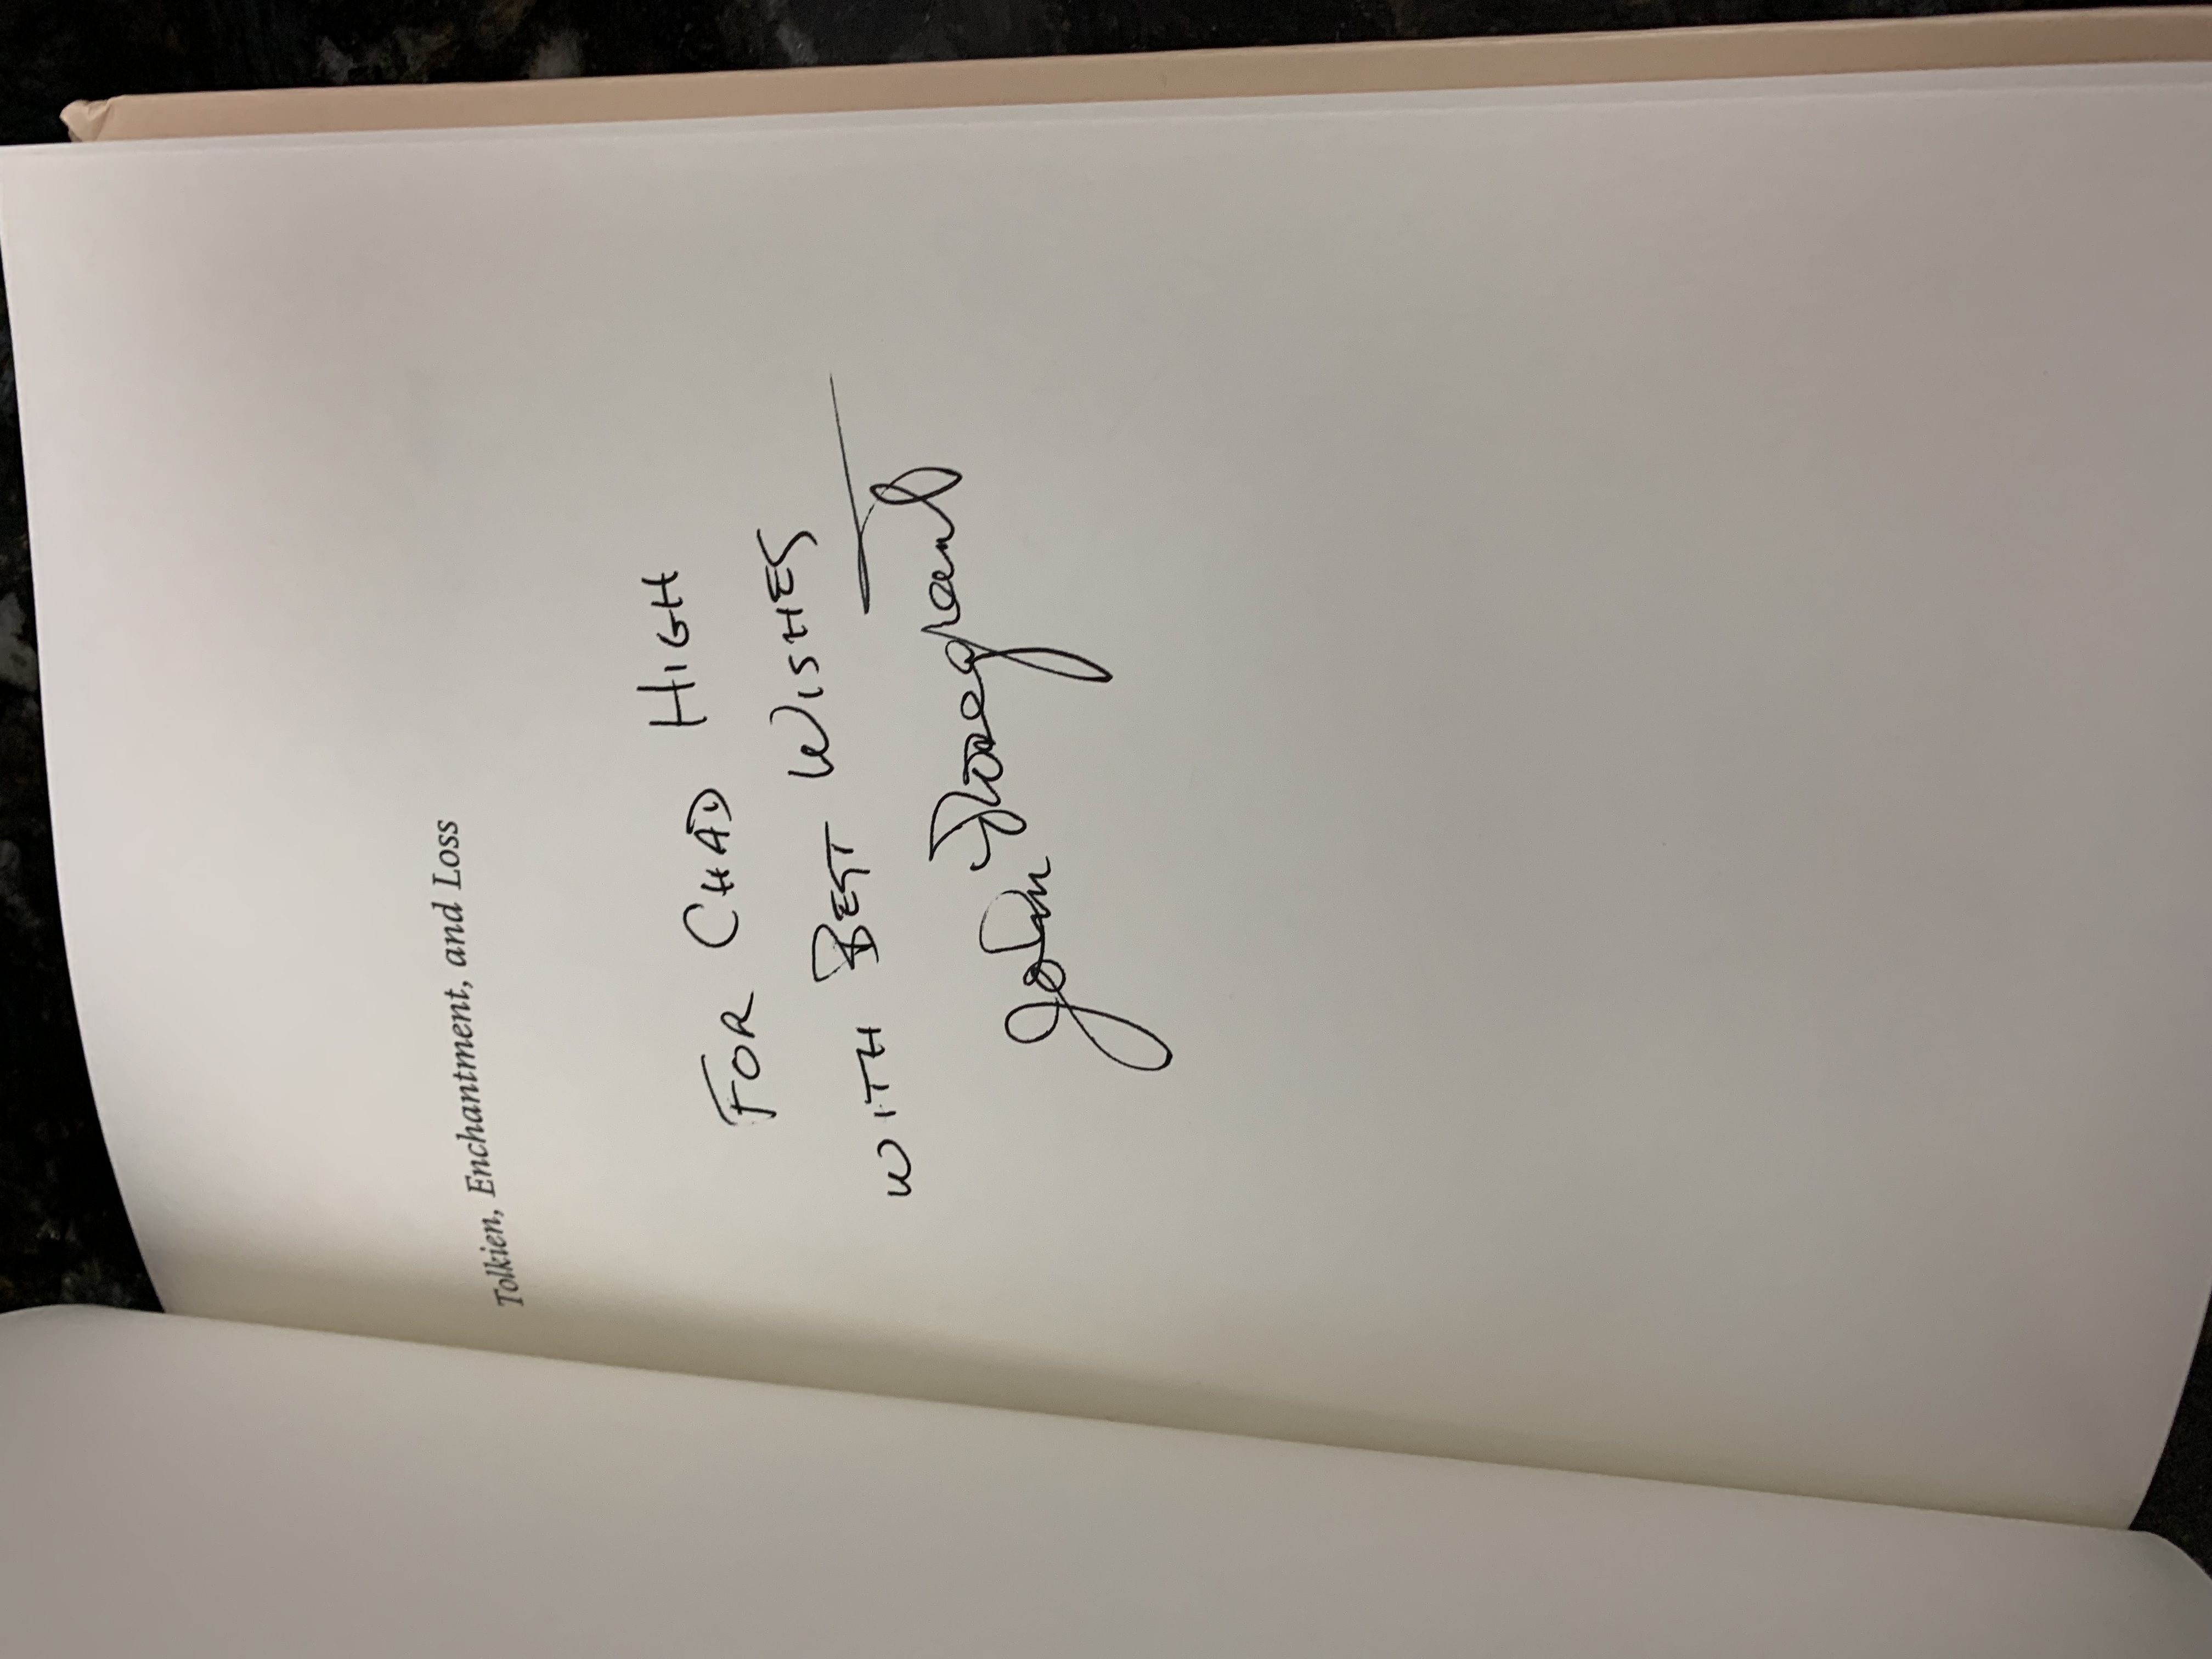 Tolkien, Enchantment, and Loss
FOR CHAD HIGH
WITH BEST WISHES
John Rosegrant